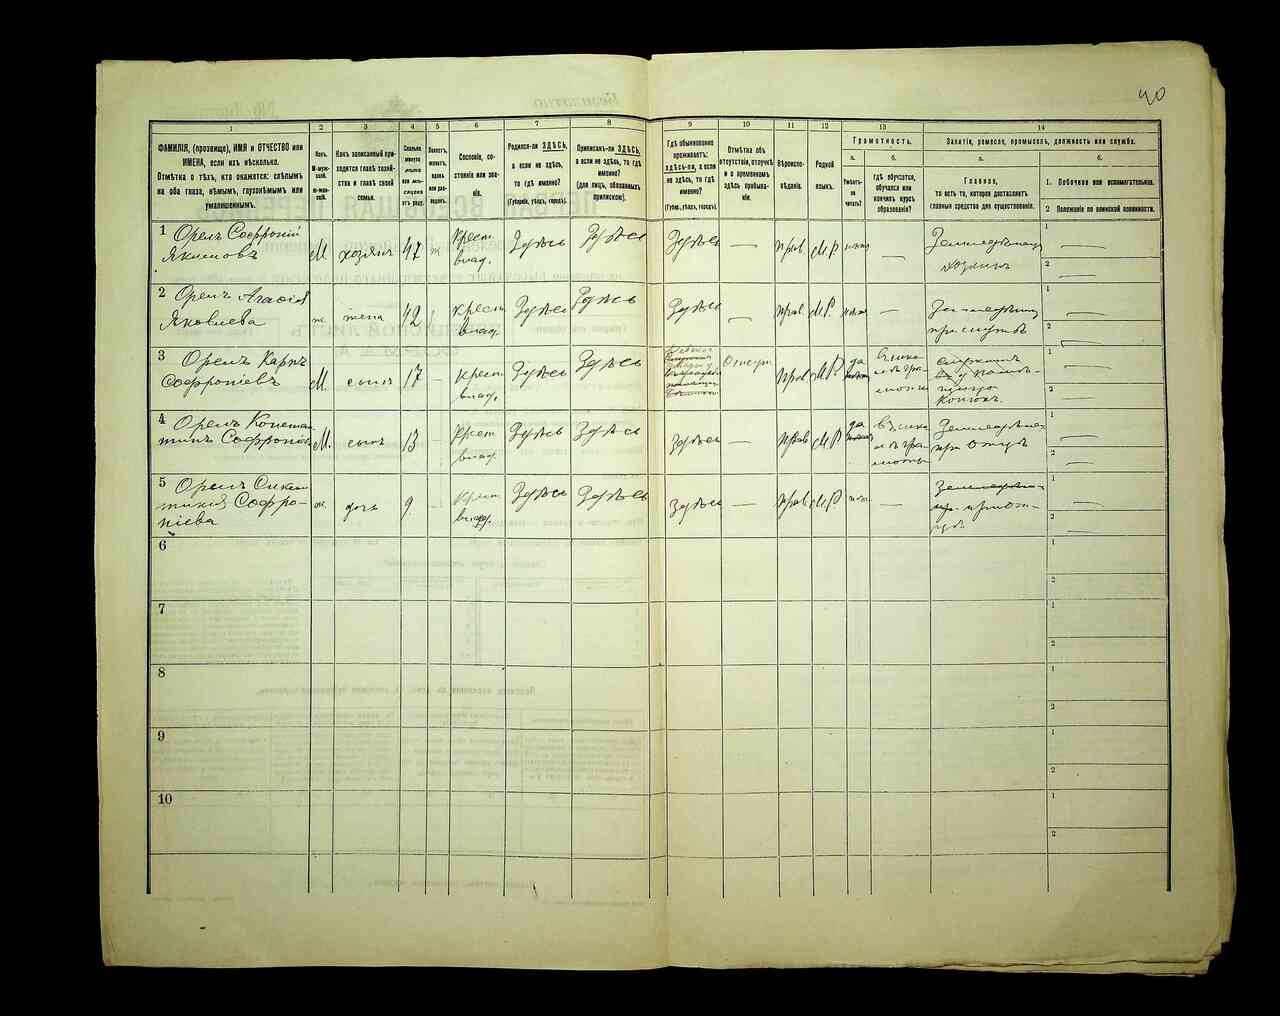 40
1 2 3 4 5 6 7 8 9 10 11 12 13 14
ФАМИЛІЯ, (прозвище), ИМЯ и ОТЧЕСТВО или
ИМЕНА, если ихъ нѣсколько.
Отмѣтка о тѣхъ, кто окажется: слѣпымъ
на оба глаза, нѣмымъ, глухонѣмымъ или
умалишеннымъ.
Полъ.
М-муж-
ской.
Ж-жен-
скій.
Какъ записанный при-
ходится главѣ хозяй-
ства и главѣ своей
семьи.
Сколько
минуло
лѣтъ
или мѣ-
сяцевъ
отъ роду.
Холостъ,
женатъ,
вдовъ
или раз-
веденъ.
Сословіе, со-
стояніе или зва-
ніе.
Родился-ли ЗДѢСЬ,
а если не здѣсь,
то гдѣ именно?
(Губернія, уѣздъ, городъ).
Приписанъ-ли ЗДѢСЬ,
а если не здѣсь, то гдѣ
именно?
(для лицъ, обязанныхъ
припискою).
Гдѣ обыкновенно
проживаетъ:
здѣсь-ли, а если
не здѣсь, то гдѣ
именно?
(Губер., уѣздъ, городъ).
Отмѣтка объ
отсутствіи, отлучкѣ
и о временномъ
здѣсь пребыва-
ніи.
Вѣроиспо-
вѣданіе.
Родной
языкъ.
Грамотность.
а. б.
Умѣетъ-
ли
читать?
гдѣ обучается,
обучался или
кончилъ курсъ
образованія?
Занятіе, ремесло, промыселъ, должность или служба.
а. б.
Главное,
то есть то, которое доставляетъ
главныя средства для существованія.
1. Побочное или вспомогательное.
2 Положеніе по воинской повинности.
1 Орелъ Софроній
Якимовъ М. хозяинъ 47 ж Крест. влад. Здѣсь Здѣсь Здѣсь — Прав. М.Р. — Земледѣлецъ
хозяинъ
1 —
2 —
2 Орелъ Агафія
Яковлева ж. жена 42 Крест. влад. Здѣсь Здѣсь Здѣсь — Прав. М.Р. —
1 —
2 —
3 Орелъ Карпъ
Софроніевъ М. сынъ 17 — Крест. влад. Здѣсь Здѣсь Отсут. Прав. М.Р. да
1 —
2 —
4 Орелъ Констан
тинъ Софроніев М. сынъ 13 — Крест. влад. Здѣсь Здѣсь Здѣсь — Прав М.Р да
при отцѣ
1 —
2 —
5 Орелъ
Софро-
ніева ж. дочь 9 — Крест. влад. Здѣсь Здѣсь Здѣсь — Прав. М.Р. —
1 —
2 —
6 1
2
7 1
2
8 1
2
9 1
2
10 1
2